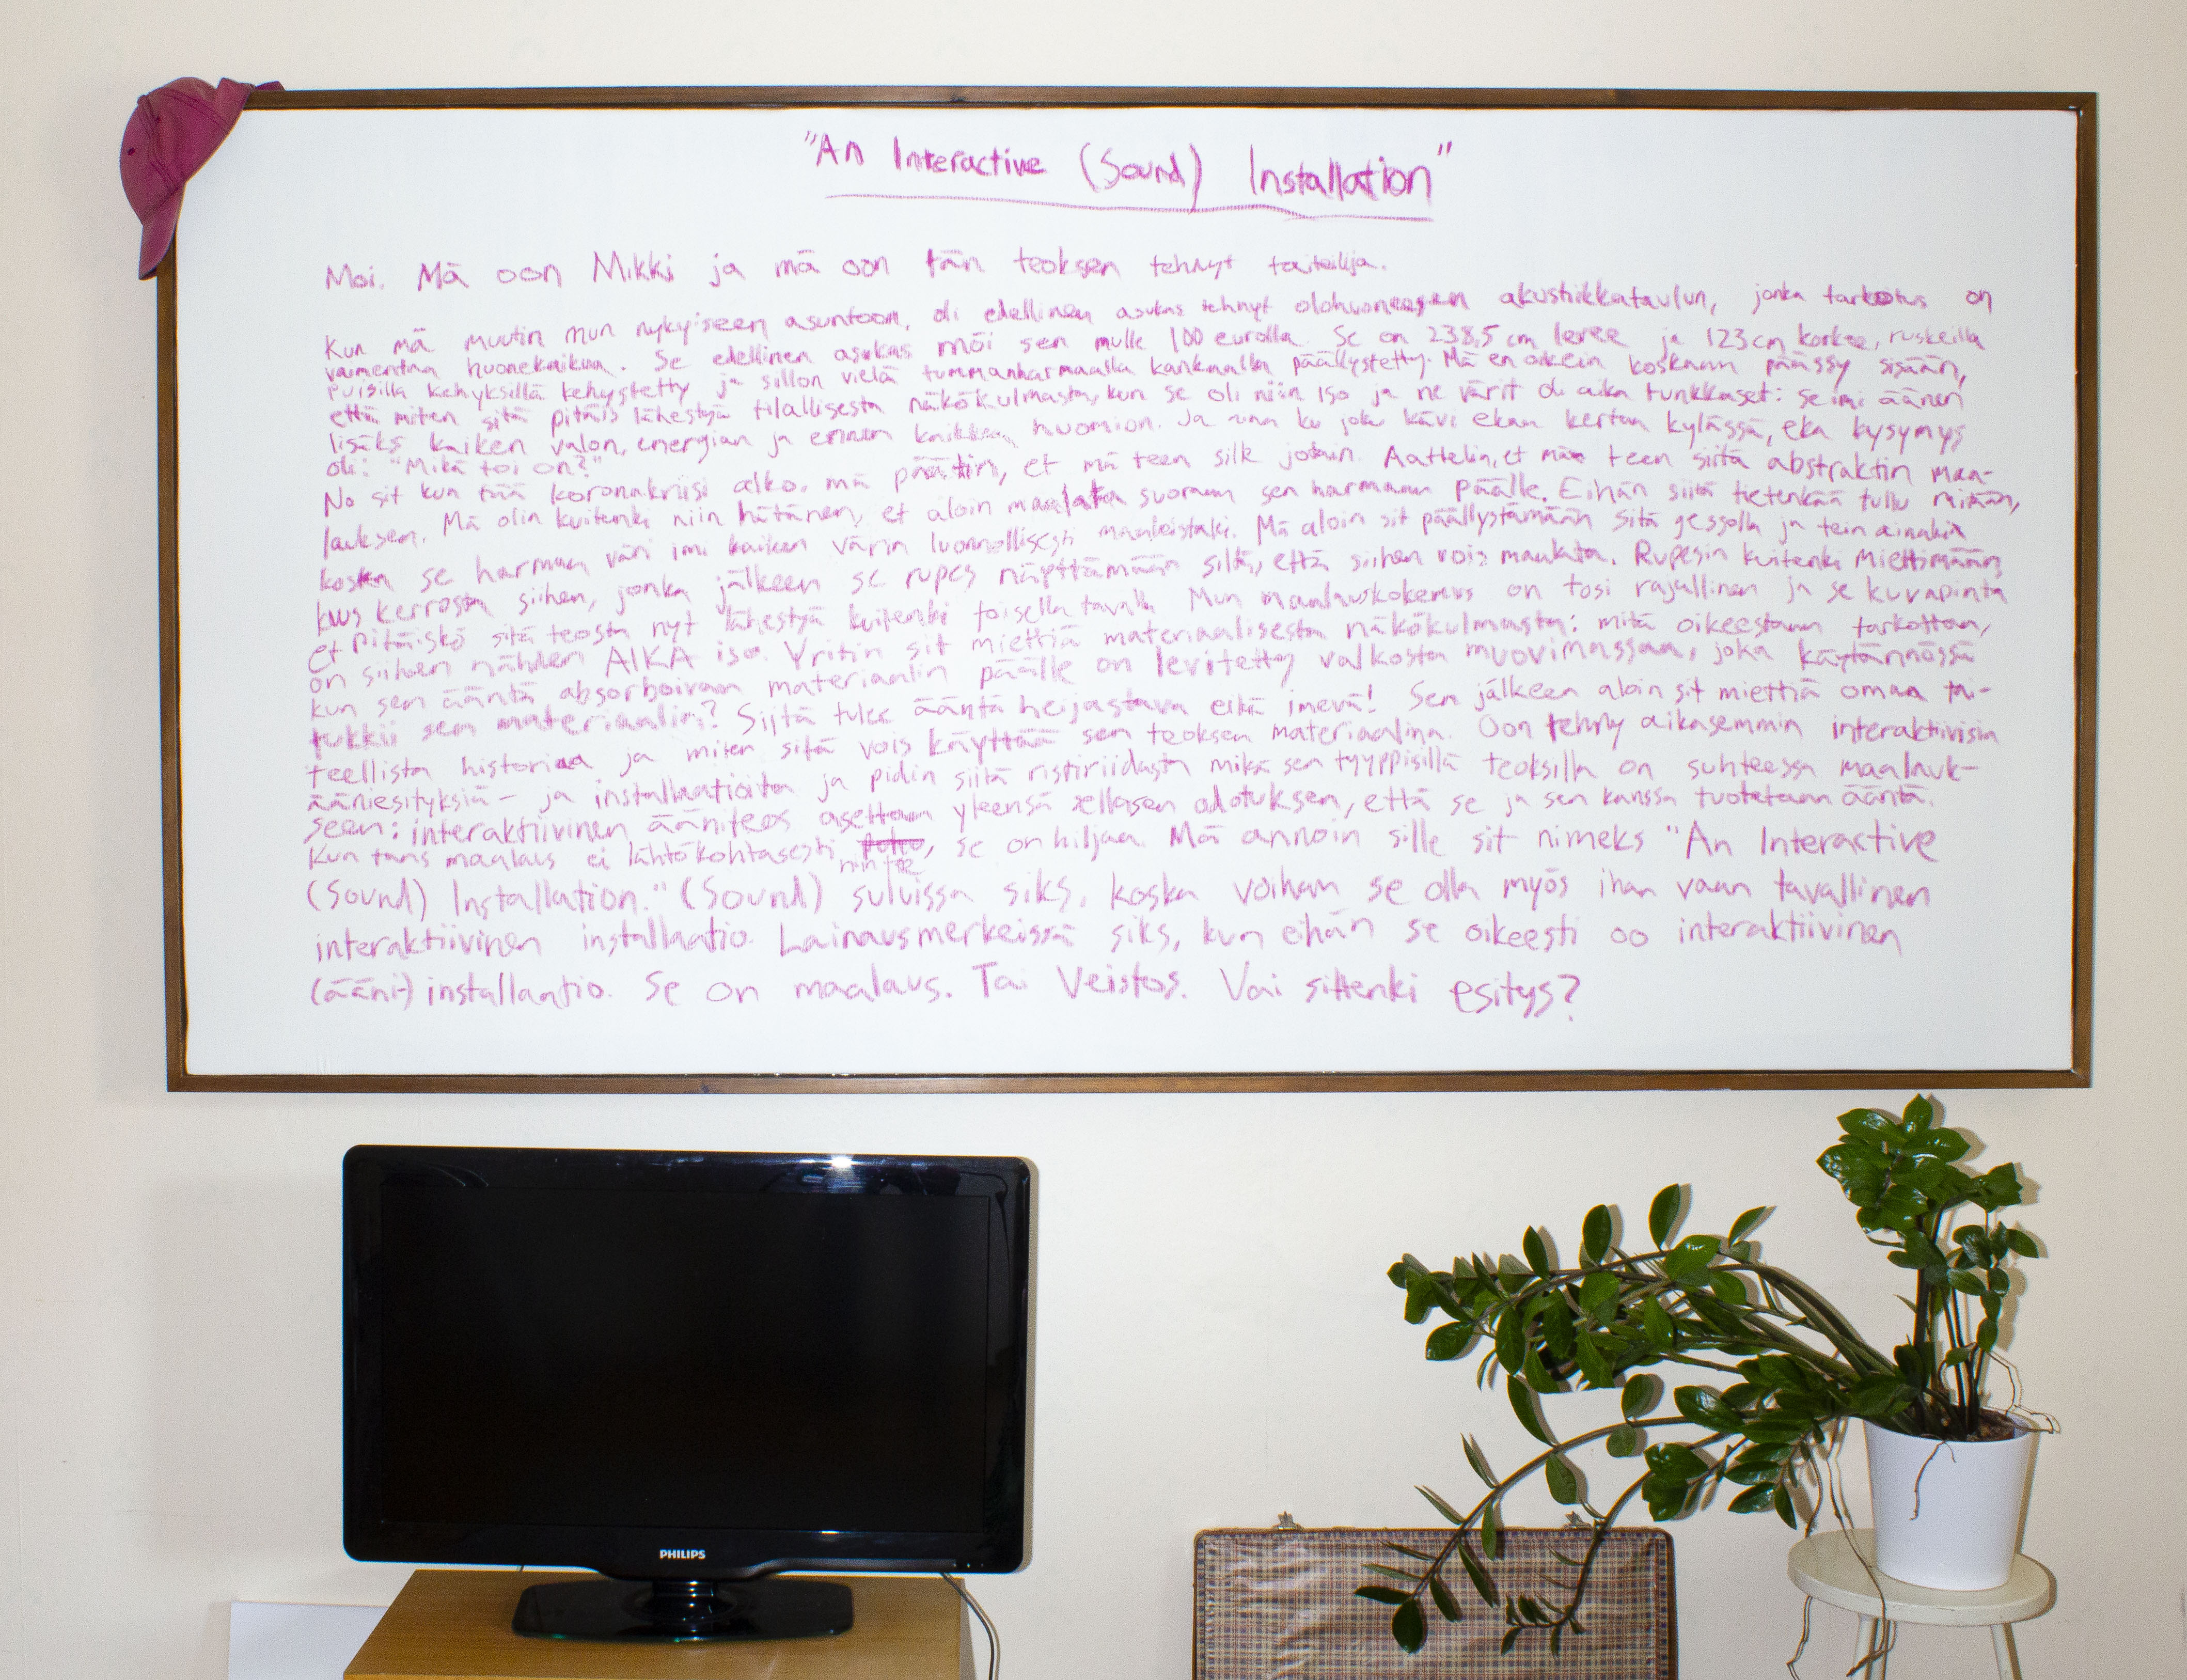 "An Interactive (Sound) Installation"
Moi. Mä oon Mikki ja mä oon tän teoksen tehnyt taiteilija.
Kun mä muutin mun nykyiseen asuntoon, oli edellinen asukas tehnyt olohuoneeseen akustiikkataulun, jonka tarkotus on
vaimentaa huonekaikua. Se edellinen asukas möi sen mulle 100 eurolla. Se on 238,5 cm levee ja 123 cm korkee, ruskeilla
puisilla kehyksillä kehystetty ja sillon vielä tummanharmaalla kankaalla päällystetty. Mä en oikein koskaan päässy sisään,
että miten sitä pitäis lähestyä tilallisesta näkökulmasta, kun se oli niin iso ja ne värit oli aika tunkkaset: se imi äänen
lisäks kaiken valon, energian ja ennen kaikkea huomion. Ja aina ku joku kävi ekan kerran kylässä, eka kysymys
oli: "Mikä toi on?"
No sit kun tää koronakriisi alko, mä päätin, et mä teen sille jotain. Aattelin, et mä teen siitä abstraktin maa-
lauksen. Mä olin kuitenki niin hätänen, et aloin maalata suoraan sen harmaan päälle. Eihän siitä tietenkää tullu mitään,
koska se harmaa väri imi kaiken värin luonnollisesti maaleistaki. Mä aloin sit päällystämään sitä gessolla ja tein ainakin
kuus kerrosta siihen, jonka jälkeen se rupes näyttämään siltä, että siihen vois maalata. Rupesin kuitenki miettimään,
et pitäiskö sitä teosta nyt lähestyä kuitenki toisella tavalla. Mun maalauskokemus on tosi rajallinen ja se kuvapinta
on siihen nähden AIKA iso. Yritin sit miettiä materiaalisesta näkökulmasta: mitä oikeestaan tarkottaa,
kun sen ääntä absorboivan materiaalin päälle on levitetty valkosta muovimassaa, joka käytännössä
tukkii sen materiaalin? Siitä tulee ääntä heijastava eikä imevä! Sen jälkeen aloin sit miettiä omaa tai-
teellista historiaa ja miten sitä vois käyttää sen teoksen materiaalina. Oon tehny aikasemmin interaktiivisia
ääniesityksiä- ja installaatioita ja pidin siitä ristiriidasta mikä sen tyyppisillä teoksilla on suhteessa maalauk-
seen: interaktiivinen ääniteos asettaa yleensä sellasen odotuksen, että se ja sen kanssa tuotetaan ääntä.
Kun taas maalaus ei lähtökohtasesti niin tee, se on hiljaa. Mä annoin sille sit nimeks "An Interactive
(Sound) Installation." (Sound) suluissa siks, koska voihan se olla myös ihan vaan tavallinen
interaktiivinen installaatio. Lainausmerkeissä siks, kun eihän se oikeesti oo interaktiivinen
(ääni-) installaatio. Se on maalaus. Tai Veistos. Vai sittenki esitys?
PHILIPS